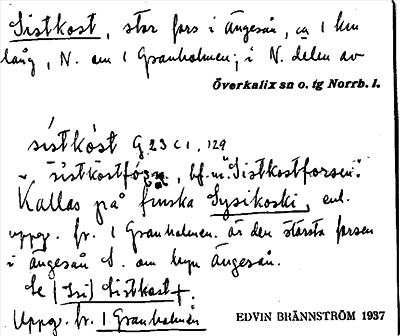 Sistkost, stor fors i Ängesån, ca 1 km
lång, N. om 1 Granholmen; i N. delen av
Överkalix sn o. tg Norrb. l.
sístkòst G 23 c 1, 129
sistkostfórsn, bf. m. "Sistkostforsen".
Kallas på finska Sysikoski, enl.
uppg. fr. 1 Granholmen. är den största forsen
i Ängesån S. om byn Ängesån.
Se (Isi) Sistkost
Uppg. fr. 1 Granholmen
EDVIN BRÄNNSTRÖM 1937